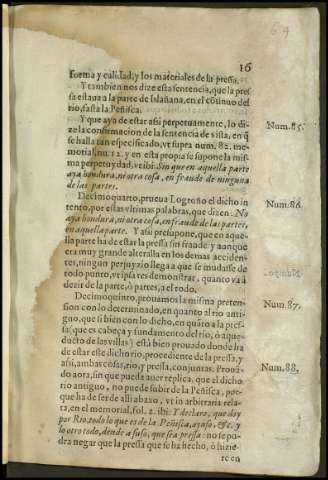 69
16
forma y calidad, y los materiales de la pressa.
Y tambien nos dize esta sentencia, que la pres
sa estaua a la parte de Islañana, en el cõtinuo del
rio, fasta la Peñisca.
Y que aya de estar assi perpetuamente, lo di-
ze la confirmacion de la sentencia de vista, en q̃
se halla tan especificado, vt supra num. 82. me-
morial, nu. 12. y en esta propia se supone la mis-
ma perpetuydad, vt ibi: Sin que en aquella parte
aya hondura, ni otra cosa, en fraude de ninguna
de las partes.
Decimoquarto, prueua Logroño el dicho in
tento, por estas vltimas palabras, que dizen. No
aya hondura, ni otra cosa, en fraude de las partes,
en aquella parte. Y assi presupone, que en aque-
lla parte ha de estar la pressa sin fraude y aunque
era muy grande alteralla en los demas acciden-
tes, ningun perjuyzio llega a que se mudasse de
todo punto, vt ipsa res demonstrar, quanto va à
dezir de la parte, ò partes, a el todo.
Decimoquinto, prouamos la misma preten-
sion con lo determinado, en quanto al rio anti-
guo, que si bien con lo dicho, en quãto a la pres-
sa (que es cabeça y fundamento del rio, ò aque-
ducto de las villas) està bien prouado donde ha
de estar este dicho rio, procediente de la pressa, y
assi, ambas cosas, rio, y pressa, con juntas. Proua-
do aora, sin que pueda auer replica, que el dicho
rio antiguo, no puede subir de la Peñisca, por-
que ha de ser de alli abaxo, vt in arbitraria rela-
ta, en el memorial, fol. 2. ibi: Y declaro, que doy
por Rio, todo lo que es de la Peñisca, ayuso, &c. y
lo otro todo, dende a suso, que sea pressa: no se po-
dra negar que la pressa que se ha hecho, ò hizie-
re en
Num. 85.
Num. 86.
Num. 87.
Num. 88.